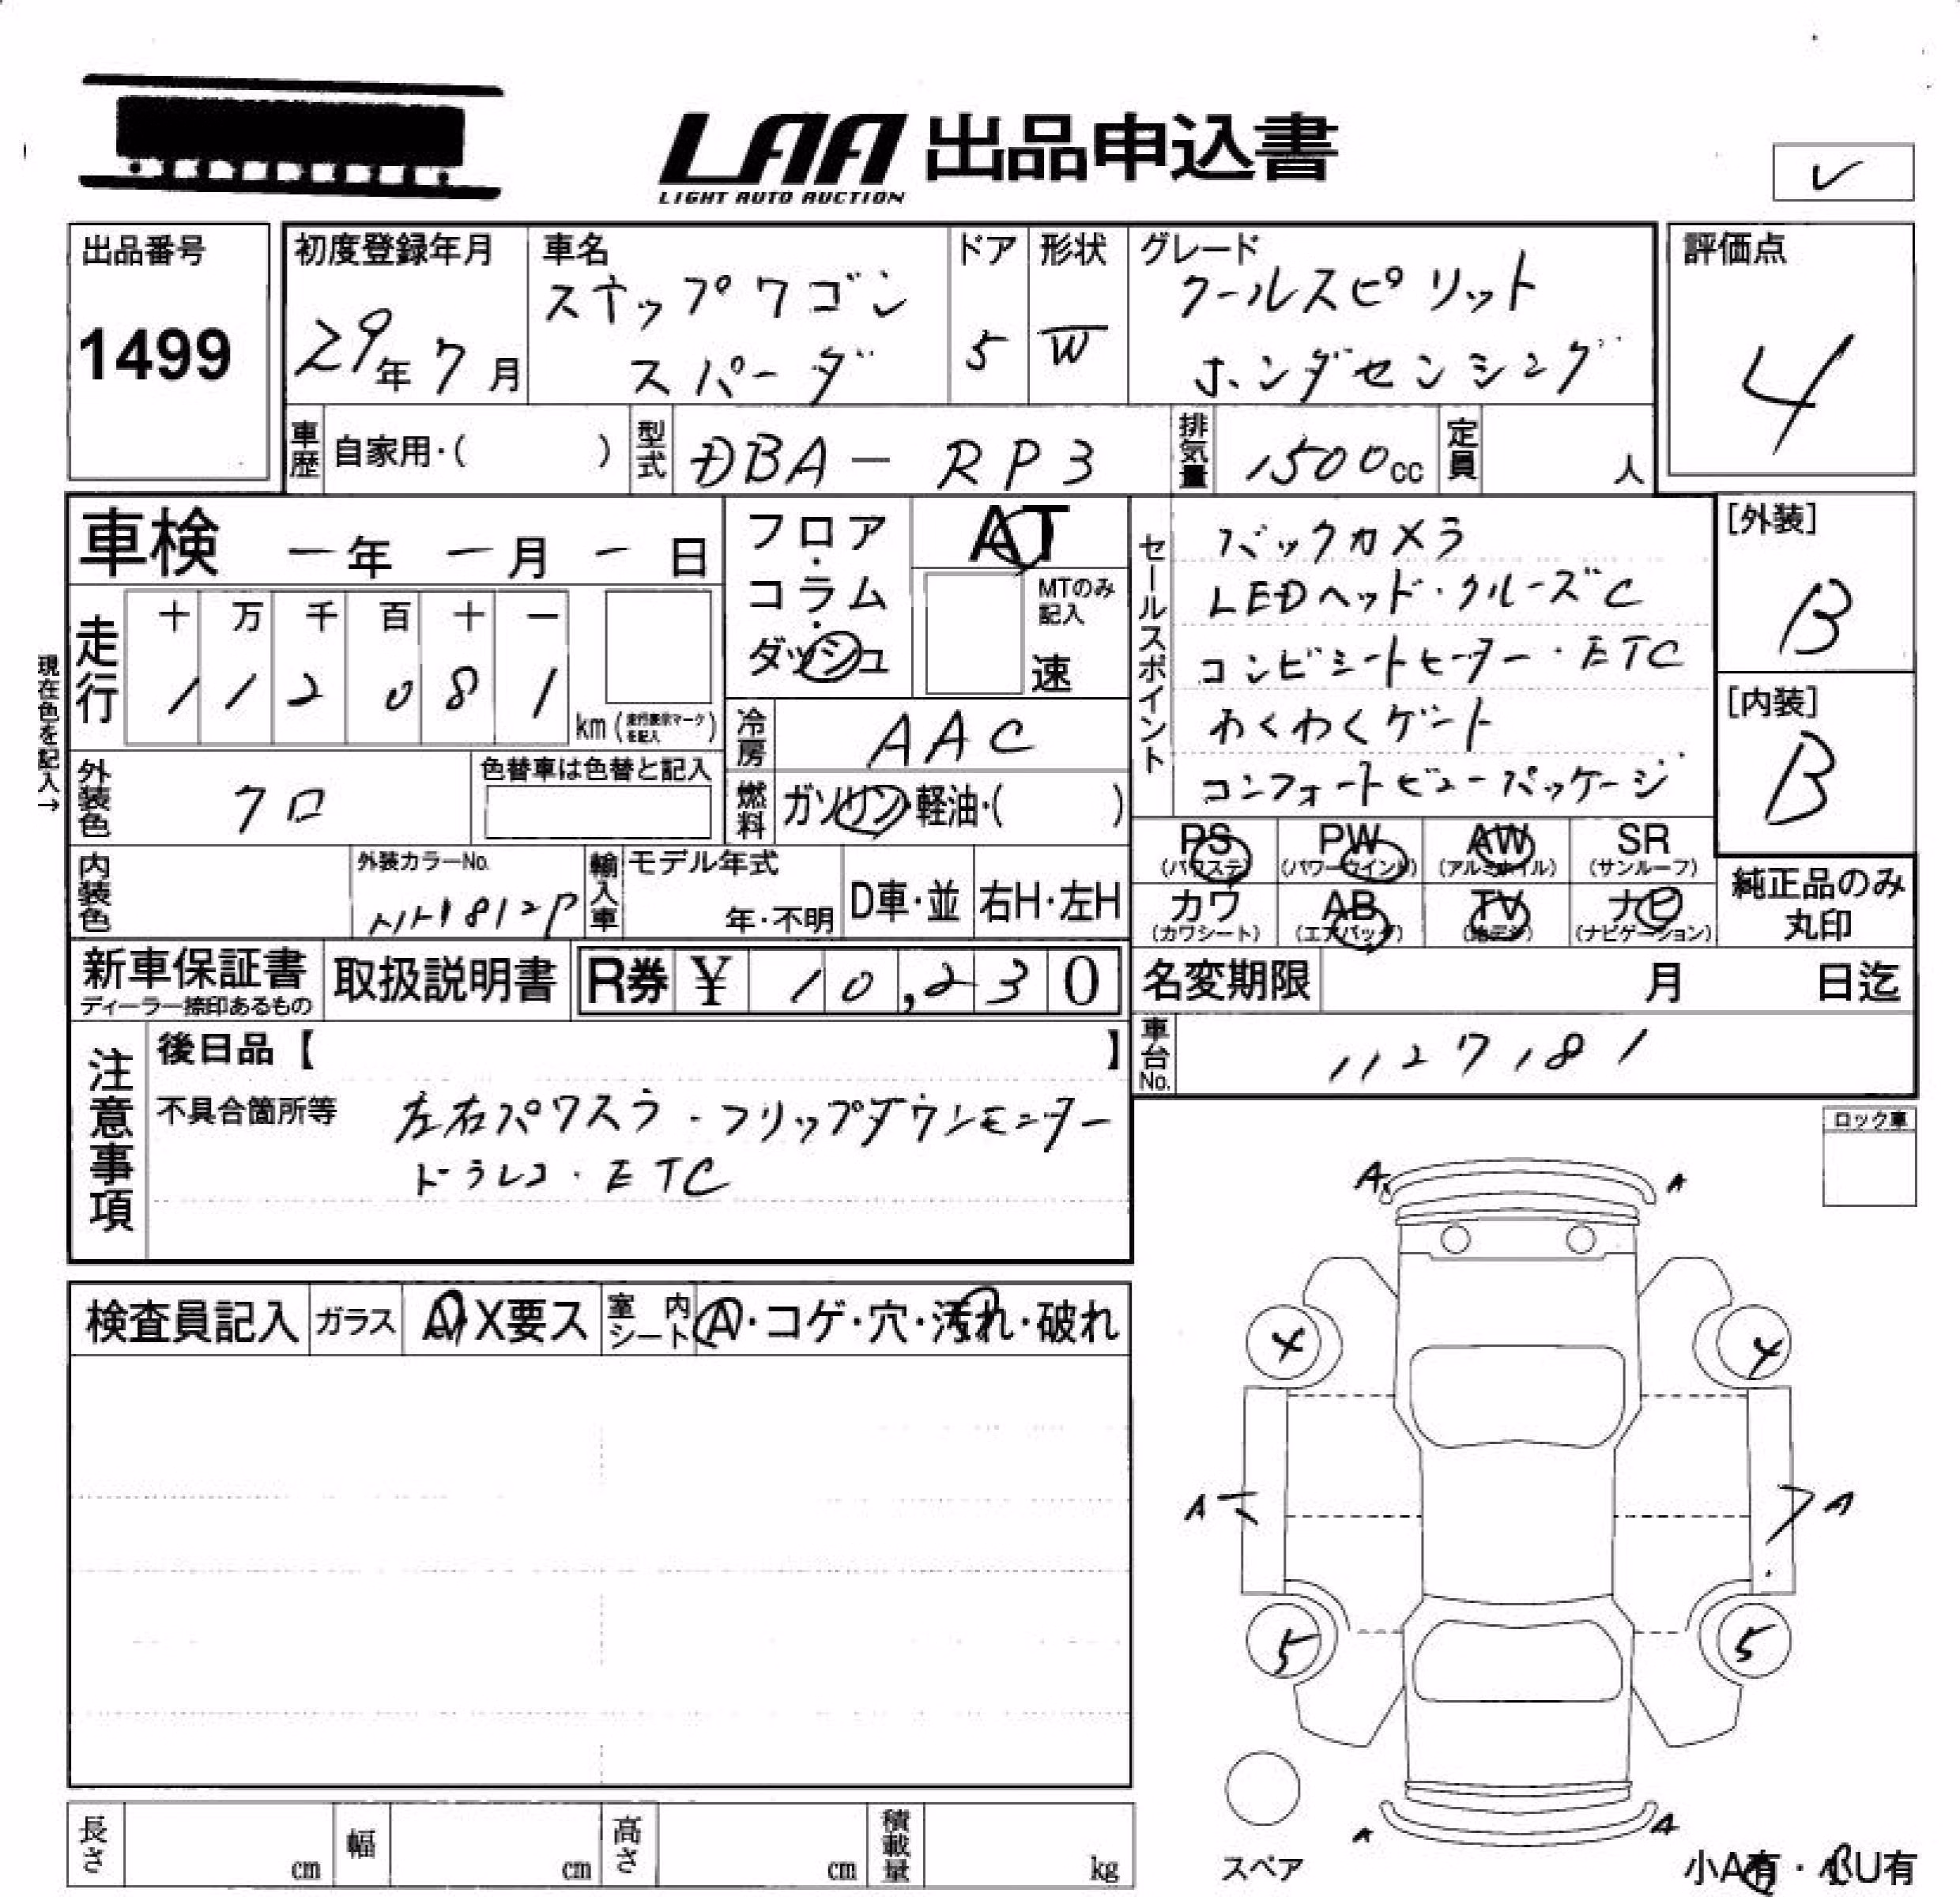 LAA 出品申込書
LIGHT AUTO AUCTION
出品番号
1499
初度登録年月
29年7月
車名
ステップワゴン
スパーダ
ドア
5
形状
W
グレード
クールスピリット
ホンダセンシング
評価点
4
車歴 自家用・( )
型式 DBA-RP3
排気量 1500cc
定員 人
車検 ー年 ー月 ー日
フロア・コラム・ダッシュ
AT
MTのみ記入
速
現在色を記入→
走行
十 万 千 百 十 一
1 1 2 0 8 1
km(走行表示マークを記入)
冷房 AAC
燃料 ガソリン・軽油・( )
外装色 クロ
色替車は色替と記入
内装色
外装カラーNo.
NH812P
輸入車
モデル年式
年・不明
D車・並
右H・左H
セールスポイント
バックカメラ
LEDヘッド・クルーズC
コンビシートヒーター・ETC
わくわくゲート
コンフォートビューパッケージ
[外装]
B
[内装]
B
PS (パワステ)
PW (パワーウインド)
AW (アルミホイル)
SR (サンルーフ)
カワ (カワシート)
AB (エアバッグ)
TV (地デジ)
ナビ (ナビゲーション)
純正品のみ
丸印
新車保証書
ディーラー捺印あるもの
取扱説明書
R券 ¥ 10,230
名変期限 月 日迄
車台No. 1127181
注意事項
後日品【 】
不具合箇所等
左右パワスラ・フリップダウンモニター
ドラレコ・ETC
ロック車
検査員記入
ガラス A X要ス
室内シート A・コゲ・穴・汚れ・破れ
A A
4 4
A A
5 5
A A
スペア
小A有・小U有
長さ cm
幅 cm
高さ cm
積載量 kg